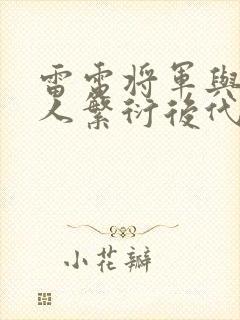 雷雷将軍與
人繁衍後代
小花瓣